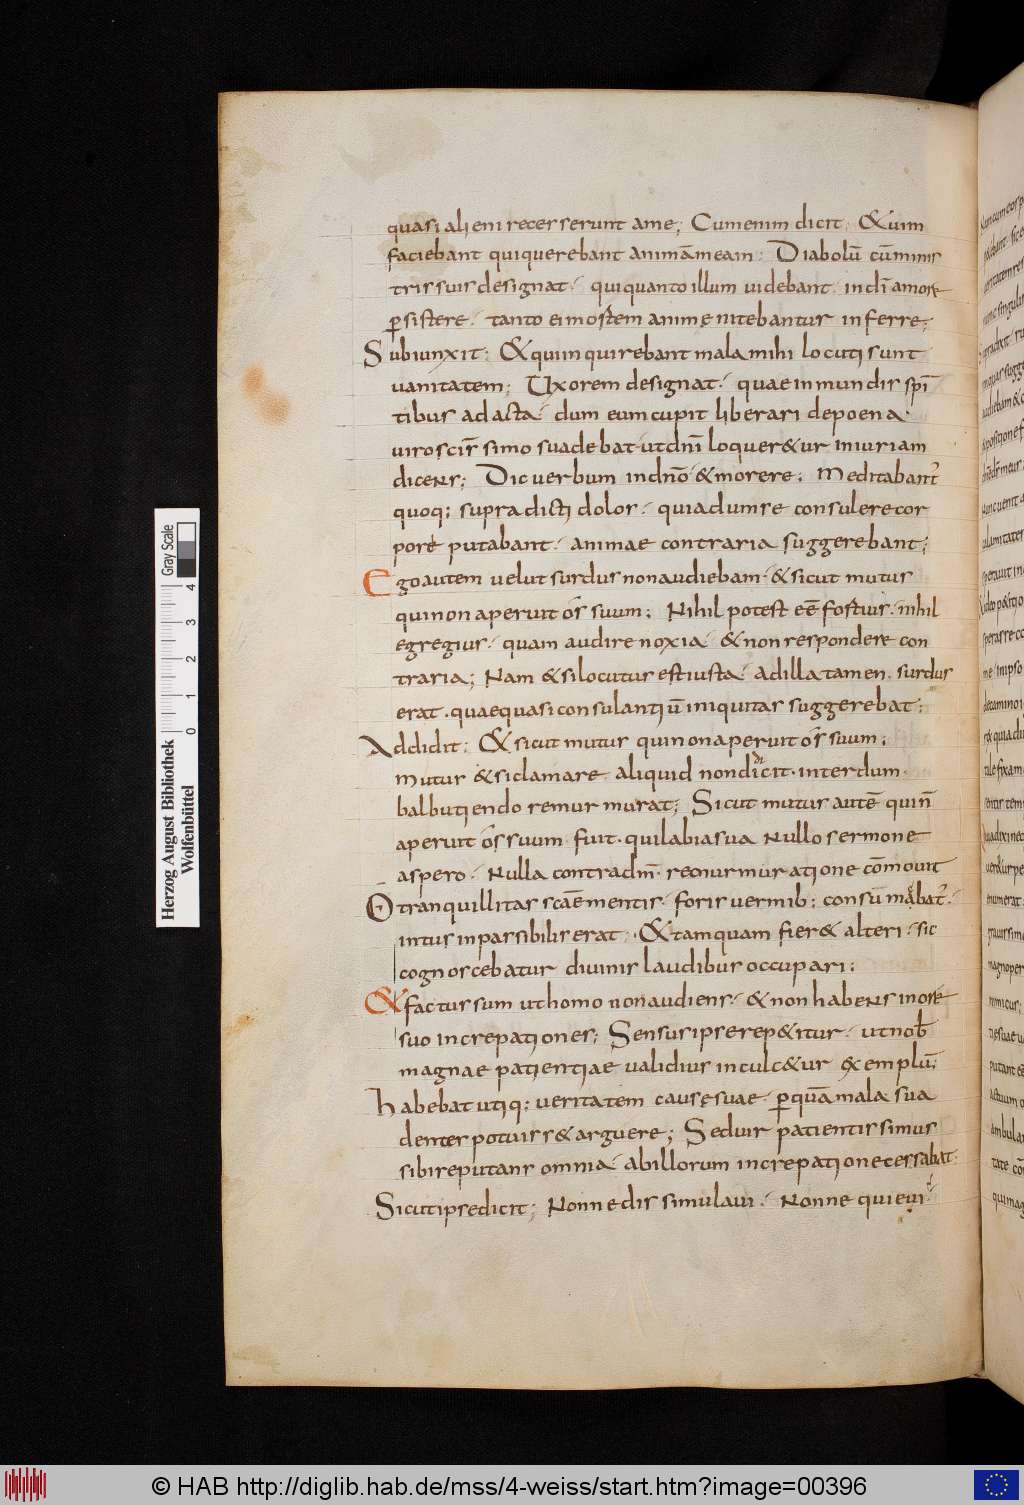 quasi alieni recesserunt ame; Cum enim dicit; & uim
faciebant qui querebant animā meam; Diabolū cū minis
tris suis designat; qui quanto illum uidebant in dī amore
persistere; tanto ei mortem animę nitebantur inferre;
Subiunxit; & qui inquirebant mala mihi locuti sunt
uanitatem; Uxorem designat; quae inmundis spī
tibus adacta; dum eum cupit liberari depoena
uiro scīssimo suadebat ut dn̄i loqueretur iniuriam
dicens; Dic uerbum in dn̄o & morere; Meditabant'
quoq; supradicti dolos; quia dum se consulere cor
pore putabant; animae contraria suggerebant;
Ego autem uelut surdus non audiebam; & sicut mutus
qui non aperuit os suum; Nihil potest eē fortius; nihil
egregius; quam audire noxia; & non respondere con
traria; Nam & si locutus est iusta; ad illa tamen surdus
erat quae quasi consulantiū iniquitas suggerebat;
Addidit; & sicut mutus qui non aperuit os suum;
mutus & si clamare aliquid non dicit interdum
balbutiendo remurmurat; Sicut mutus autē qui n̄
aperuit os suum fuit qui labia sua nullo sermone
aspero; Nulla contra dn̄m remurmuratione cōmouit
O tranquillitas scāe mentis; foris uermib; consūmabat'
intus inpassibilis erat; & tamquam fieret alteri; sic
cognoscebatur diuinis laudibus occupari;
& factus sum ut homo non audiens; & non habens in ore
suo increpationes; Sensus ipse repetitur; ut nob̄
magnae patientiae ualidius inculcetur exemplū;
habebat utiq; ueritatem causę suae; per quā mala sua
dentes potuisset arguere; Sed uir patientissimus
sibi reputans omnia; ab illorum increpatione cessabat
Sicut ipse dicit; Nonne dissimulaui; Nonne quieui
Herzog August Bibliothek
Wolfenbüttel
0 1 2 3 4
Gray Scale
© HAB http://diglib.hab.de/mss/4-weiss/start.htm?image=00396